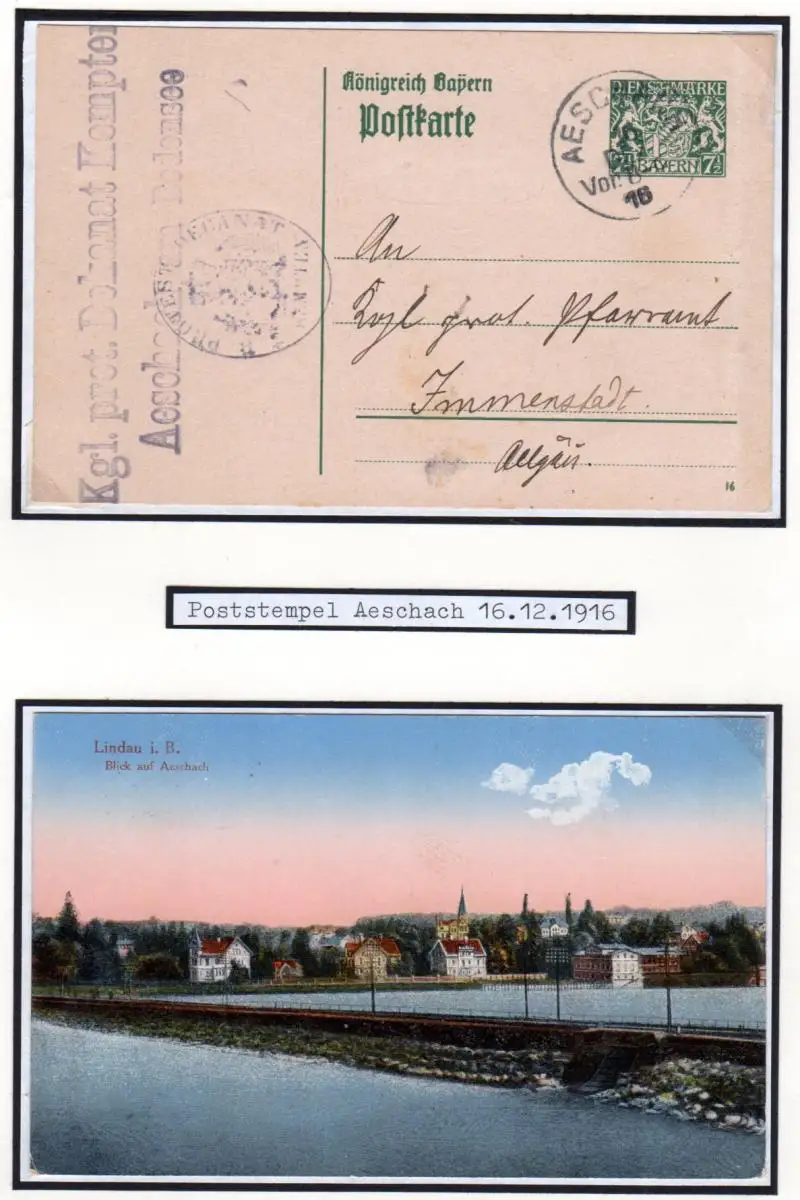 Kgl. prot. Dekanat Kempten
Aeschach am Bodensee
PROTEST. DECANAT KEMPTEN
Königreich Bayern
Postkarte
AESCHACH
Vor.
16
DIENSTMARKE
7½ BAYERN 7½
An
Kgl. prot. Pfarramt
Immenstadt.
Allgäu.
16
Poststempel Aeschach 16.12.1916
Lindau i. B.
Blick auf Aeschach